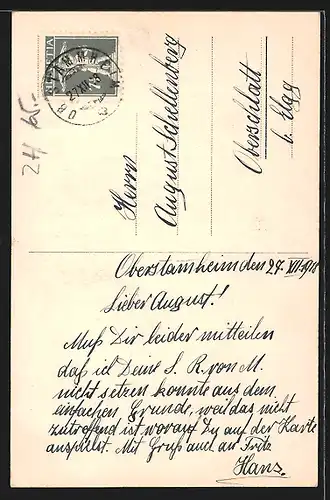 HELVETIA
OB. STAMMHEIM
27.XII.18
24 65.-
Herrn
August Schellenberg
Oberschlatt
b. Elgg
Oberstamheim den 27. XII. 1918
Lieber August!
Muß Dir leider mitteilen
daß ich Deine S. R. von M.
nicht setzen konnte aus dem
einfachen Grunde, weil das nicht
zutreffend ist worauf Du auf der Karte
anspielst. Mit Gruß auch an Fritz
Hans.